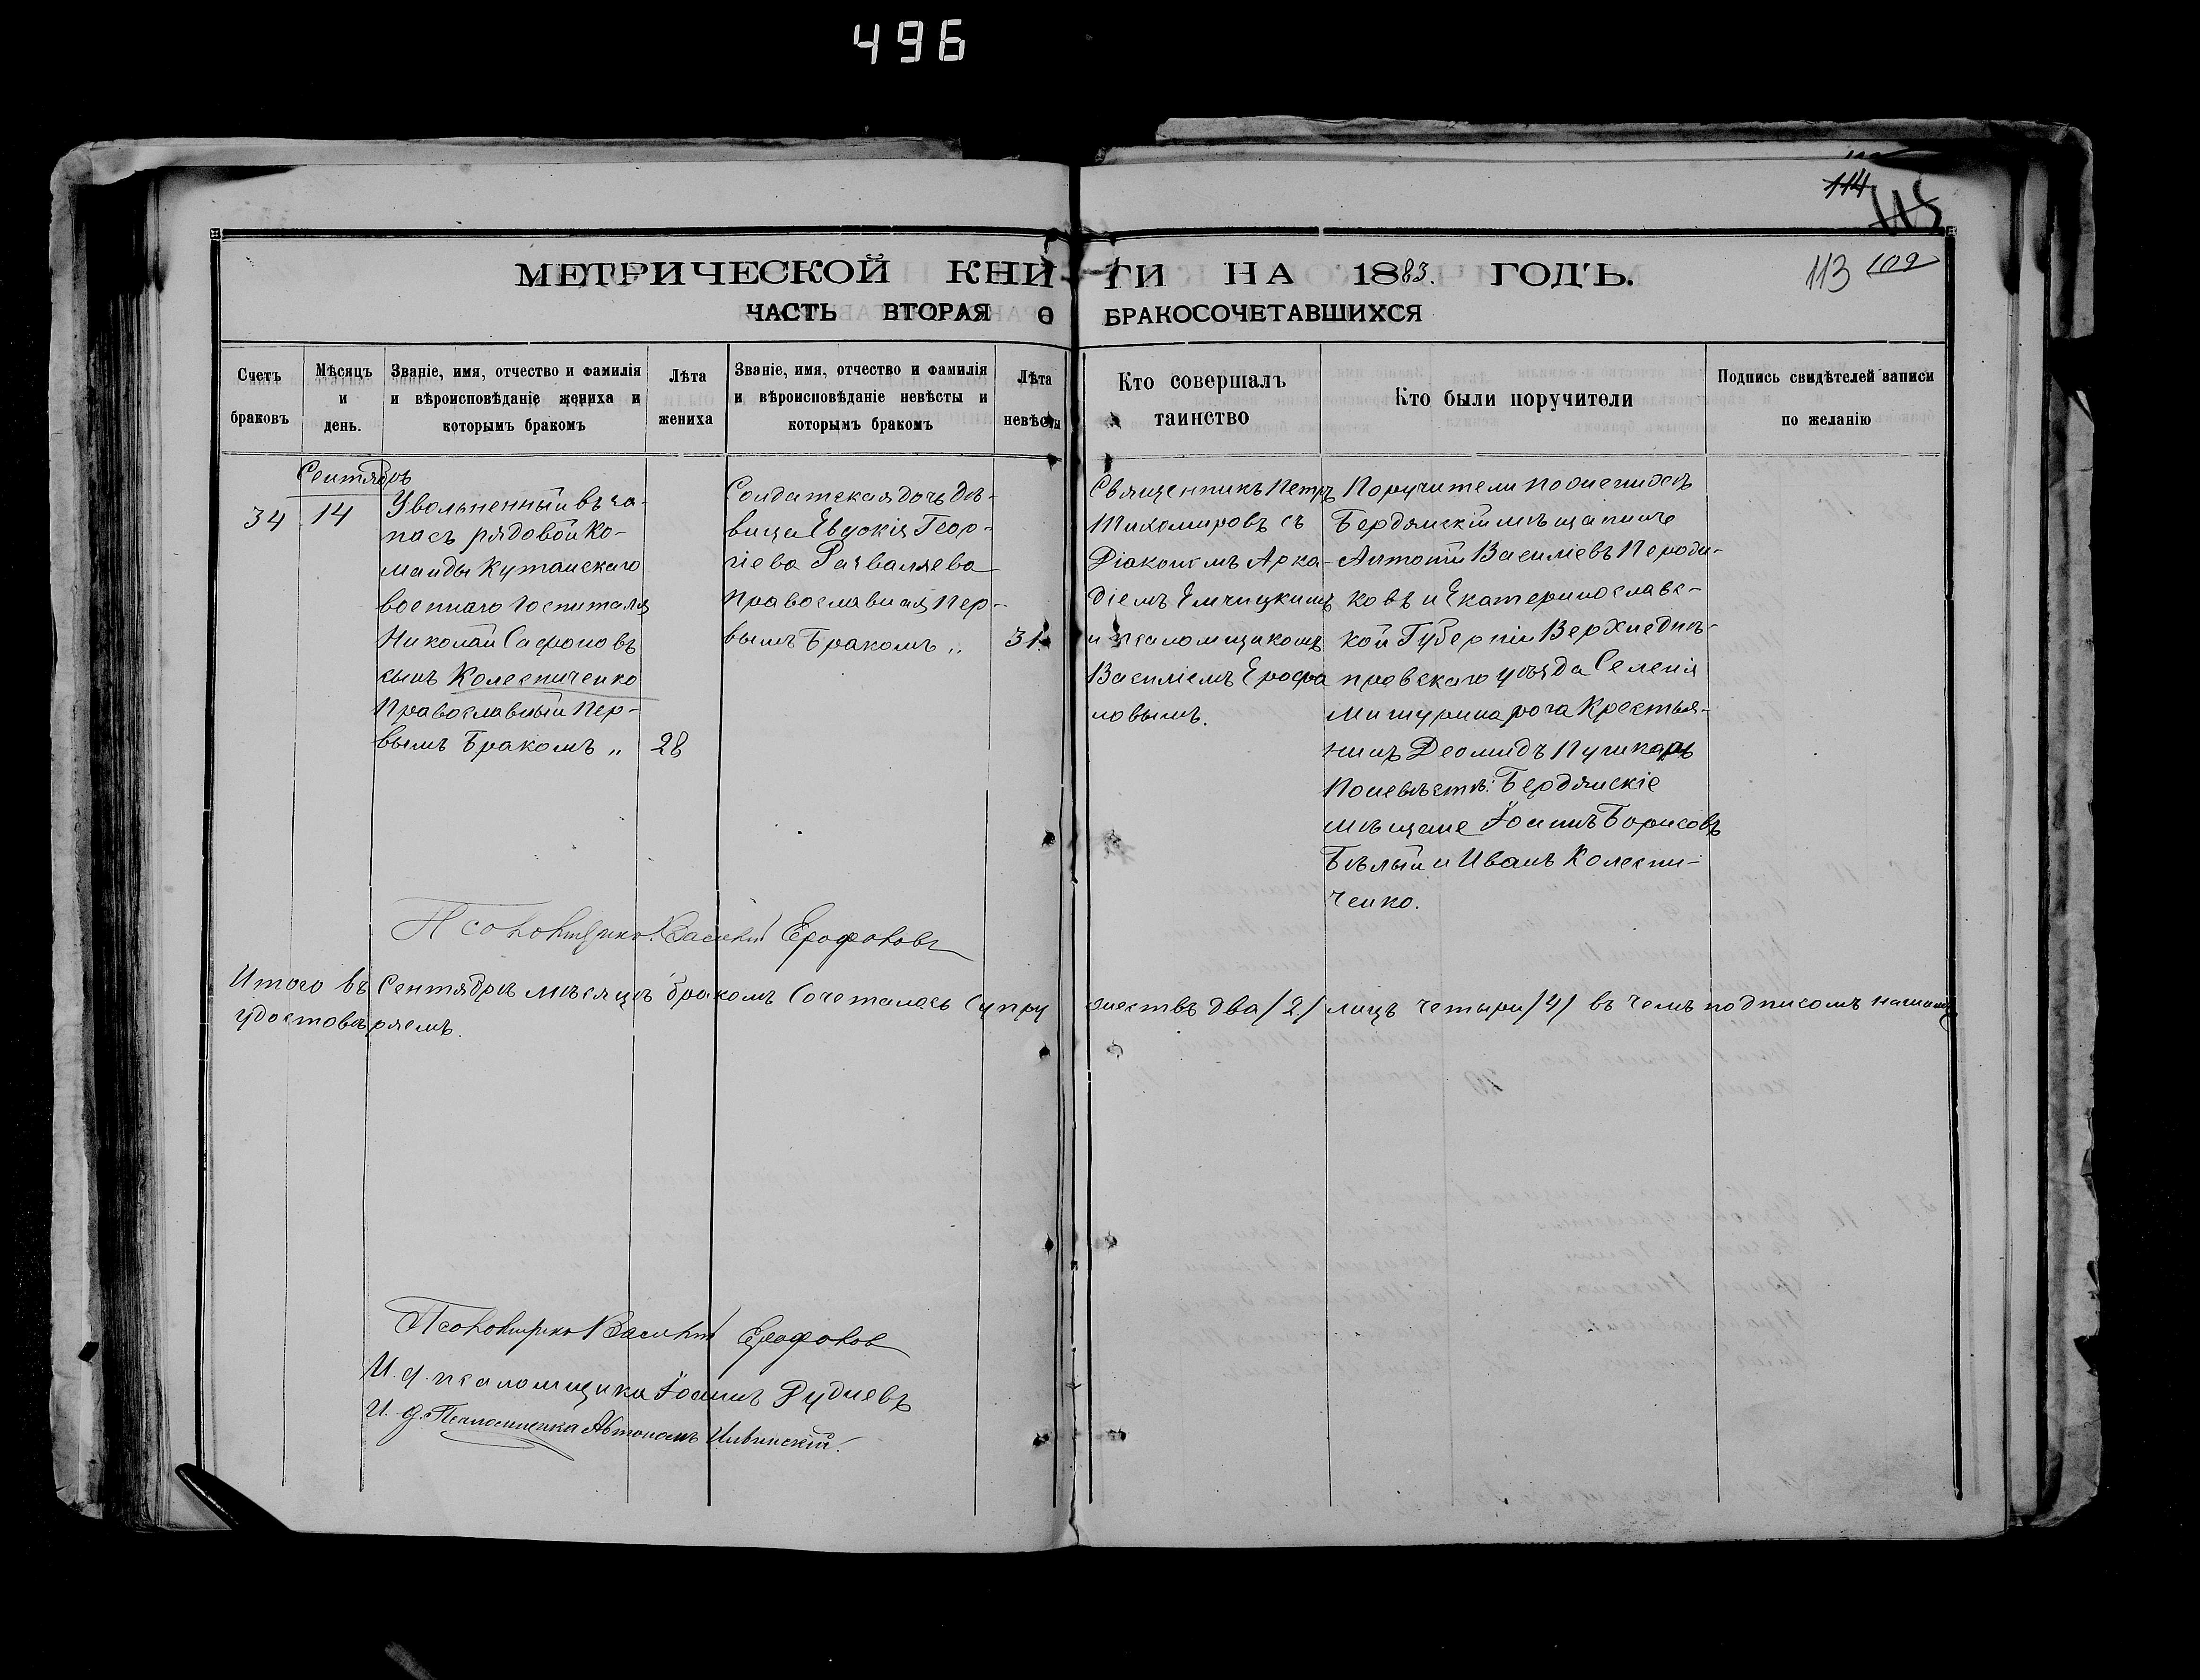 496
114
115
113 109
МЕТРИЧЕСКОЙ КНИГИ НА 1883. ГОДЪ.
ЧАСТЬ ВТОРАЯ О БРАКОСОЧЕТАВШИХСЯ
Счетъ браковъ
Мѣсяцъ и день.
Званіе, имя, отчество и фамилія
и вѣроисповѣданіе жениха и
которымъ бракомъ
Лѣта жениха
Званіе, имя, отчество и фамилія
и вѣроисповѣданіе невѣсты и
которымъ бракомъ
Лѣта невѣсты
Кто совершалъ
таинство
Кто были поручители
Подпись свидѣтелей записи
по желанію
Сентябрь
34
14
Увольненный въ за-
пасъ рядовой Ко-
манды Кутаискаго
военнаго Госпиталя
Николай Сафоновъ
сынъ Колесниченко
Православный Пер-
вымъ Бракомъ „
28
Солдатская дочь дѣ-
вица Евдокія Геор-
гіева Разваляева
Православная Пер-
вымъ Бракомъ „
31.
Священникъ Петръ
Тихомировъ съ
Діакономъ Арка-
діемъ Емчицкимъ
и псаломщикомъ
Василіемъ Ерофа
ловымъ.
Поручители по
Бердянскій мѣщанинъ
Антоній Василіевъ Пероди-
ковъ и Екатеринославс-
кой Губерніи Верхнеднѣ-
провскаго уѣзда Селенія
Мишуринарога Крестья-
нинъ Деомидъ Пушкарь
Поневѣстѣ: Бердянскіе
мѣщане Іоаннъ Борисовъ
Бѣлый и Иванъ Колесни-
ченко.
Псаломщикъ Василій Ерофаловъ
Итого въ Сентябрѣ мѣсяцѣ бракомъ Сочеталось Супру жествъ два /2/ лицъ четыри /4/ въ чемъ подписомъ нашимъ
удостовѣряемъ.
Псаломщикъ Василій Ерофалов
И. д. псаломщика Іоаннъ Рудневъ
И. д. Псаломщика Автономъ Ильинскій.